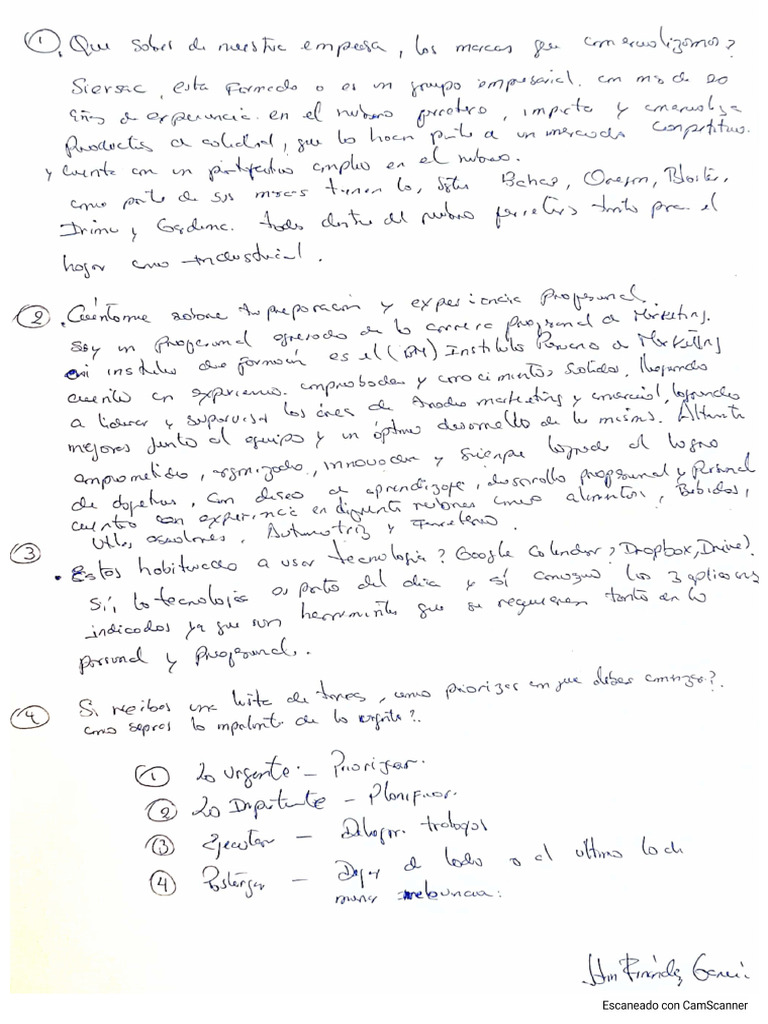 ① Que sabes de nuestra empresa, las marcas que comercializamos?
Siersac, esta formado o es un grupo empresarial. con mas de 20
años de experiencia. en el rubro ferretero, importa y comercializa
Productos de calidad, que lo hacen parte a un mercado competitivo.
y cuenta con un portafolio amplio en el rubro.
como parte de sus marcas tienen la, Bahco, Oregon,
y Gardena. todo dentro del rubro ferretero tanto para el
hogar como industrial.
② . Cuéntame sobre tu preparación y experiencia profesional.
Soy un profesional egresado de la carrera profesional de Marketing.
mi instituto de formación es el (IPM) Instituto Peruano de Marketing
cuento con experiencia comprobada y conocimientos solidos, llegando
a liderar y supervisar las área de marketing y comercial, logrando
mejoras junto al equipo y un óptimo desarrollo de la misma. Altamente
comprometido, organizado, innovador y siempre logrado el logro
de objetivos, con deseo de aprendizaje, desarrollo profesional y Personal
cuento con experiencia en diferente rubros como alimentos, Bebidas,
Utiles escolares, Automotriz y Ferretero.
③
• Estas habituado a usar tecnología? Google Calendar, Dropbox, Drive).
Si, la tecnología es parte del dia y si conozco las 3 aplicaciones
indicados ya que son herramientas que se requieren tanto en lo
personal y Profesional.
④ Si recibes una lista de tareas, como priorizas en que debes comenzar?.
como separas lo importante de lo urgente?.
① Lo Urgente. — Priorizar.
② Lo Importante — Planificar.
③ Ejecutar — Delegar trabajos
④ Postergar — Dejar de lado o al ultimo lo de
menor relevancia.
Garcia
Escaneado con CamScanner